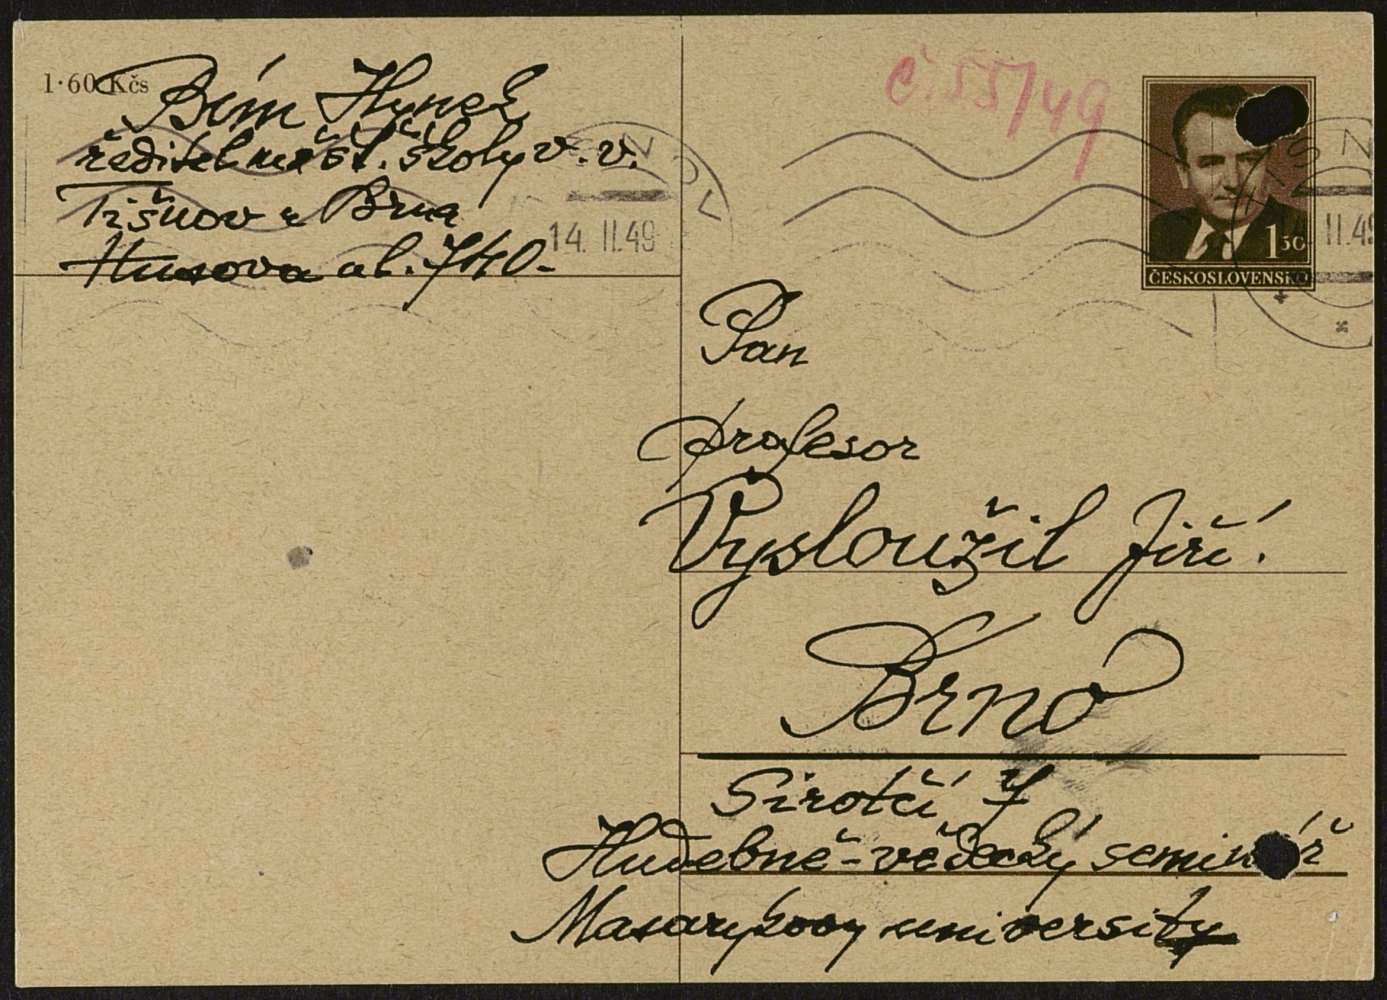 1·60 Kčs
Bím Hynek
ředitel měšť. školy v. v.
Tišnov u Brna
Husova ul. 740.
14. II. 49
č. 55/49
1 50
ČESKOSLOVENSKO
II. 49
Pan
profesor
Vysloužil Jiří.
Brno
Sirotčí 7
Hudebně-vědecký seminář
Masarykovy university